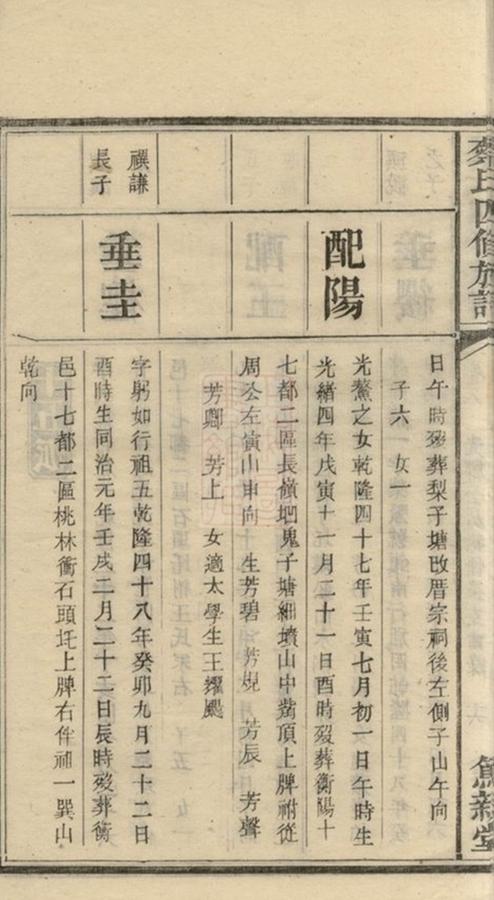 氏四修族譜
篤新堂
日午時歿葬梨子塘改厝宗祠後左側子山午向
子六 女一
配陽
光鰲之女乾隆四十七年壬寅七月初一日午時生
光緒四年戊寅十一月二十一日酉時歿葬衡陽十
七都二區長嶺 鬼子塘細墳山中嵩頂上牌祔從
周公左寅山申向 生芳碧 芳規 芳辰 芳聲
芳卿 芳上 女適太學生王耀颺
禩謙
長子
垂圭
字躬如行祖五乾隆四十八年癸卯九月二十二日
酉時生同治元年壬戌二月二十二日辰時歿葬衡
邑十七都二區桃林衝石頭圫上牌右伴祖一巽山
乾向